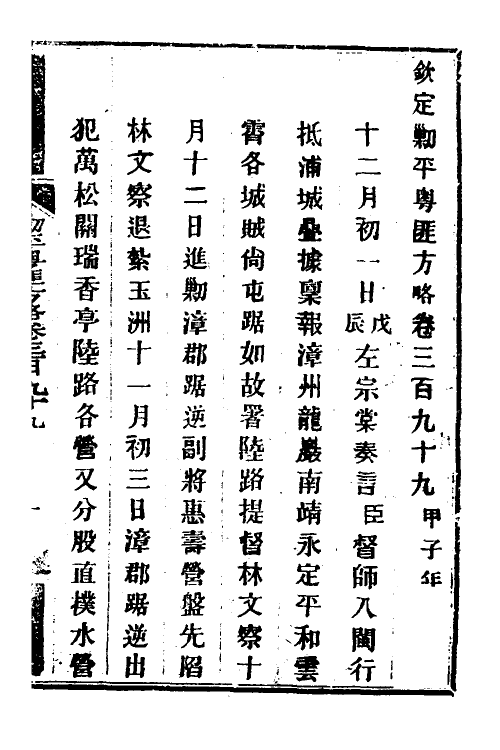 欽定剿平粵匪方略卷三百九十九甲子年
十二月初一日戊辰左宗棠奏言臣督師入閩行
抵浦城疊據稟報漳州龍巖南靖永定平和雲
霄各城賊尙屯踞如故署陸路提督林文察十
月十二日進剿漳郡踞逆副將惠壽營盤先陷
林文察退紮玉洲十一月初三日漳郡踞逆出
犯萬松關瑞香亭陸路各營又分股直撲水營